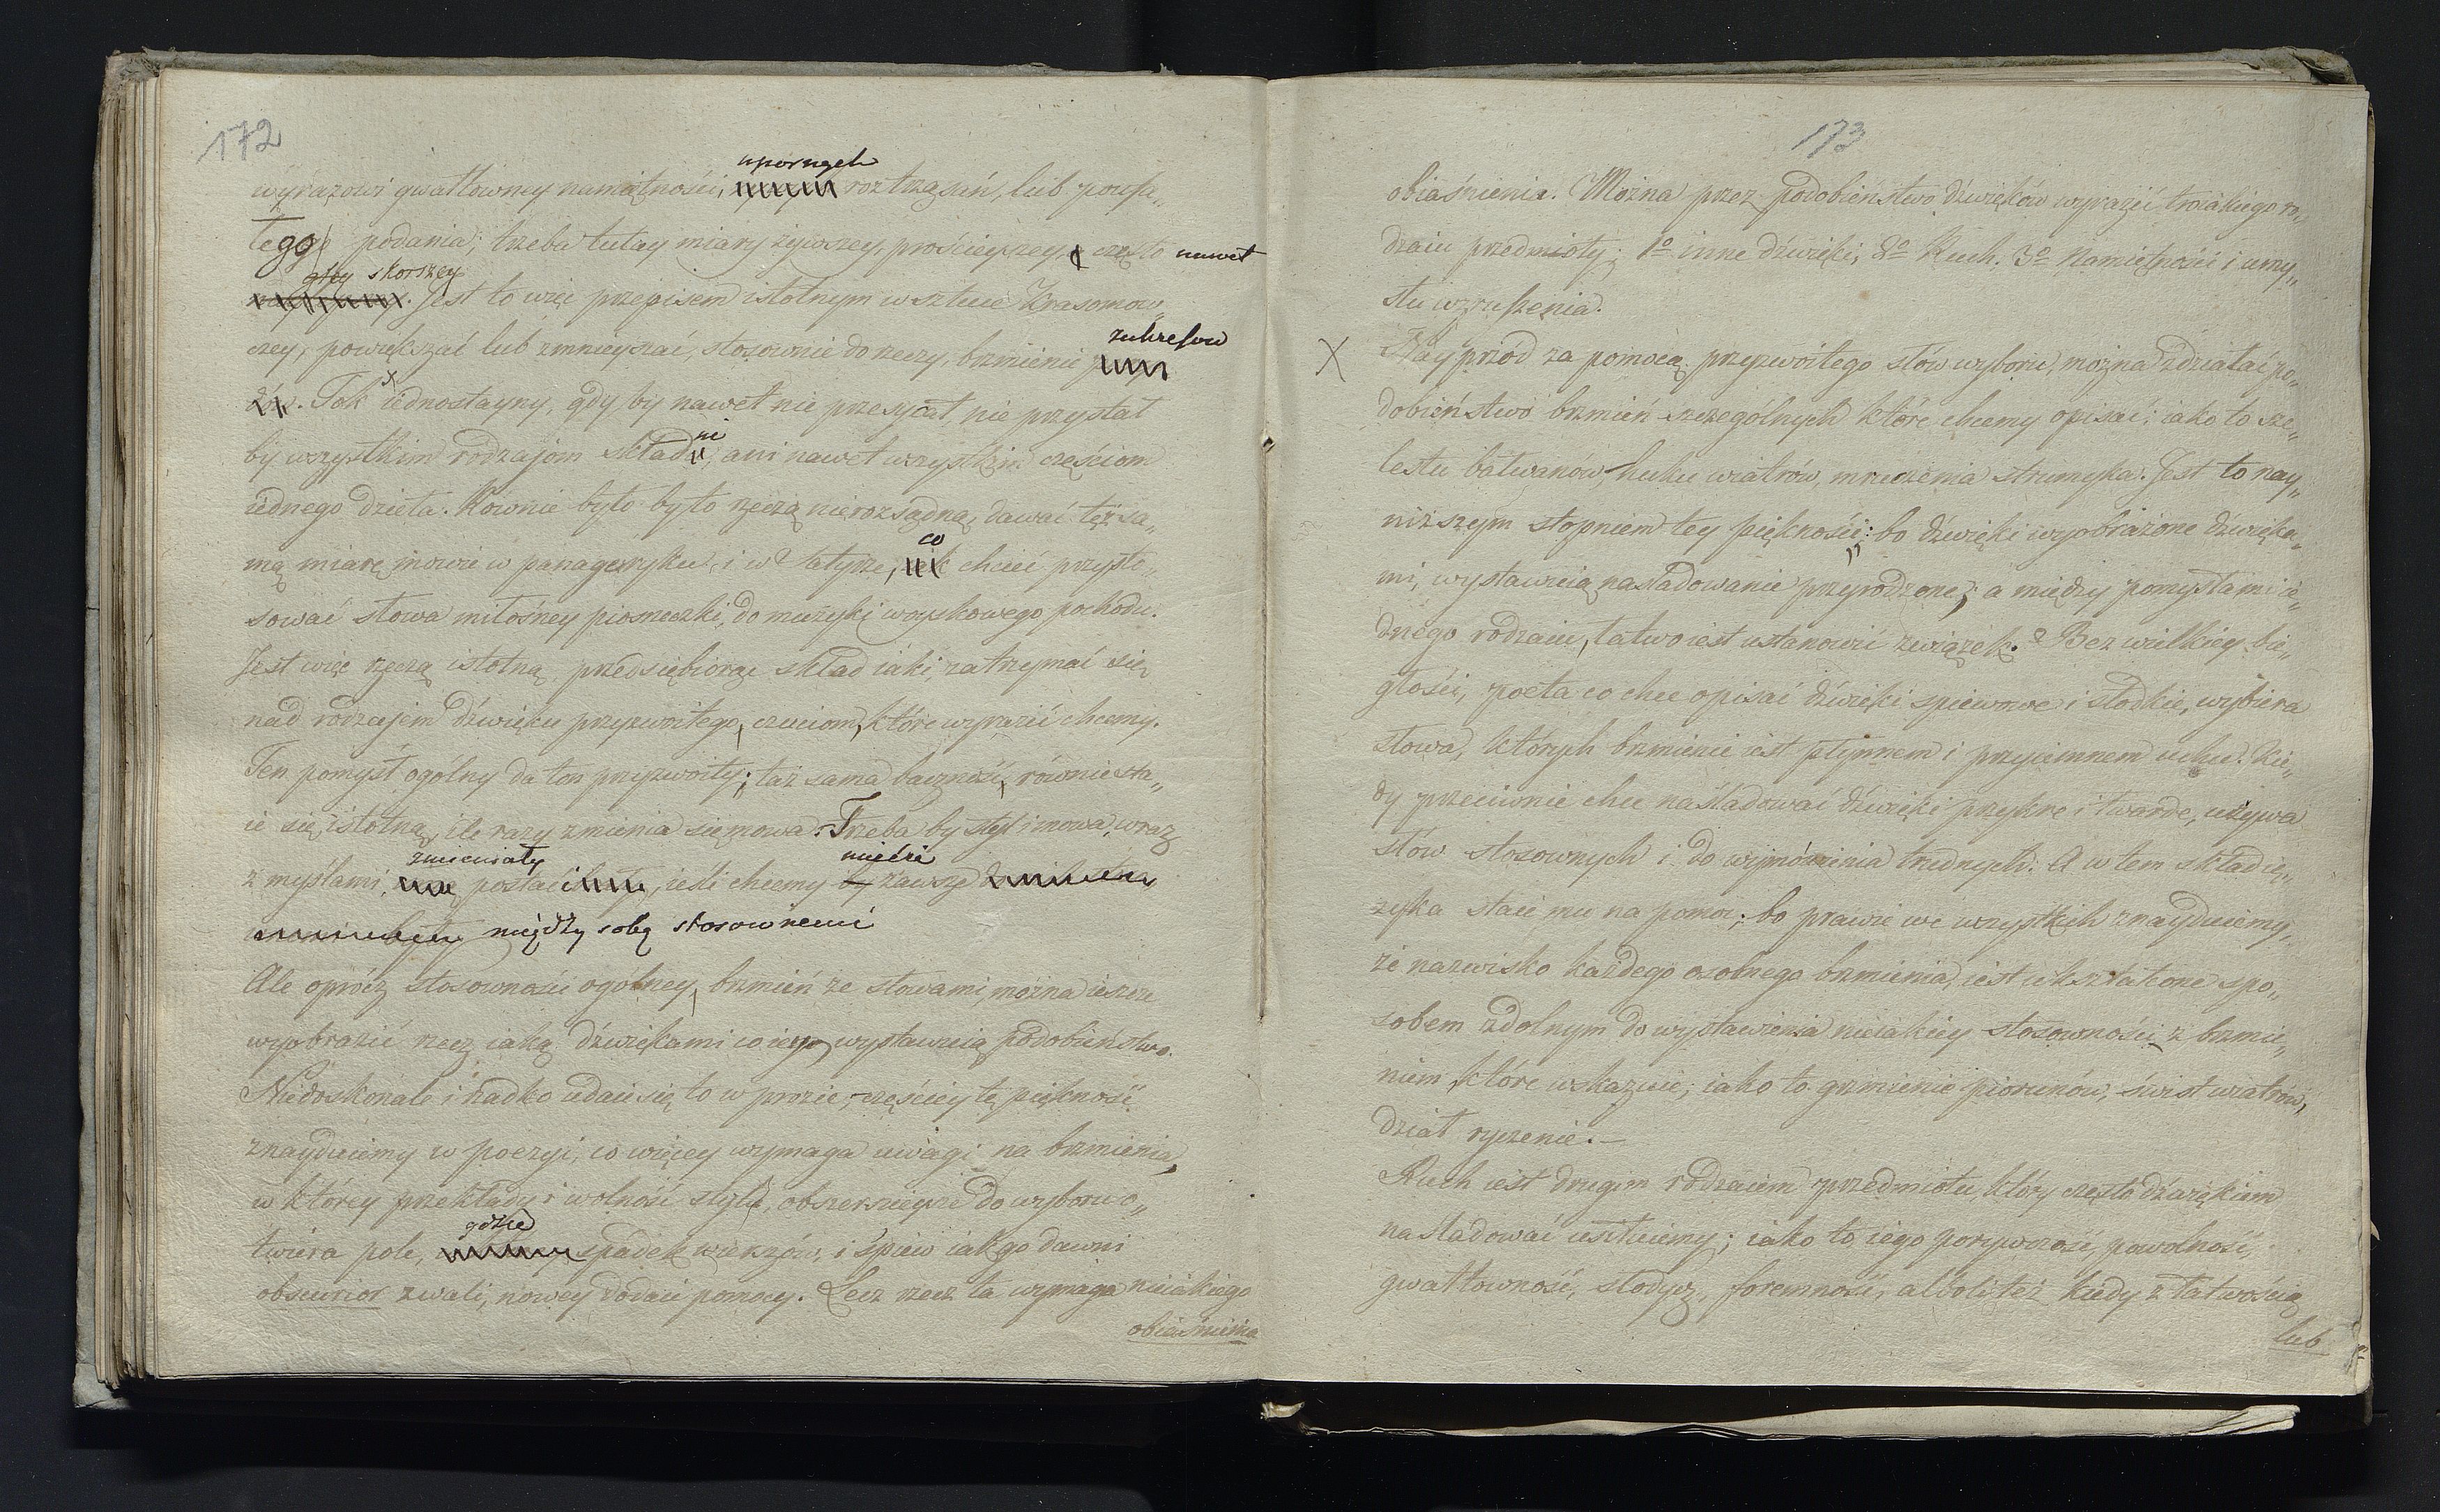 172
upornych
wyrazowi gwałtowney namiętności, roztrząsań, lub poufa„
łego podania; trzeba tutay miary żywszey, prościeyszey, często nawet
skorszey
Jest to więc przepisem istotnym w sztuce Krasomow„
zakresow
czey, powiększać lub zmnieyszać, stosownie do rzeczy, brzmienie
Tok iednostayny, gdy by nawet nie przesycał, nie przystał
ni
by wszystkim rodzajom składu, ani nawet wszystkim częściom
iednego dzieła. Równie było by to rzeczą nierozsądną, dawać też sa„
co
mą miarę mowie w panegeryku, i w Satyrze, chcieć przysto„
sować słowa miłośney piosneczki, do muzyki woyskowego pochodu.
Jest więc rzeczą istotną przedsiębiorąc skład iaki, zatrzymać się
nad rodzajem dźwięku przyzwoitego, czuciom, które wyrazić chcemy.
Ten pomysł ogólny da ton przyzwoity; taż sama baczność, równie sta„
ie się istotną, ile razy zmienia się mowa. Trzeba by styl i mowa, wraz
zmieniały mieźć
z myślami, postać, ieśli chcemy by zawsze
między sobą stosownemi
Ale oprócz stosowności ogólney, brzmień ze słowami, można ieszcze
wyobrazić rzecz iaką dźwiękami co iey wystawuią podobieństwo.
Niedoskonale i rzadko udaie się to w prozie, częściey tę piękność
znayduiemy w poezyi, co więcey wymaga uwagi na brzmienia,
w którey przekłady i wolność stylu, obszernieysze do wyboru o„
gdzie
twiera pole, spadek wierszów, i śpiew iak go dawni
obscurior zwali, nowey dodaie pomocy. Lecz rzecz ta wymaga nieiakiego
obiaśnienia
173
obiaśnienia. Można przez podobieństwo dźwięków wyrazić troiakiego ro„
dzaiu przedmioty; 1º inne dźwięki; 2º Ruch. 3º Namiętności i umy„
słu wzruszenia.
X Nayprzód za pomocą przyzwoitego słów wyboru, można zdziałać po„
dobieństwo brzmień szczególnych które chcemy opisać; iako to sze„
lestu bałwanów, huku wiatrów, mruczenia strumyka. Jest to nay„
niższym stopniem tey piękności: bo dźwięki wyobrażone dźwięka„
mi, wystawuią naśladowanie przyrodzone; a między pomysłami ie„
dnego rodzaiu, łatwo iest ustanowić związek. Bez wielkiey bie„
głości, poeta co chce opisać dźwięki spiewowe i słodkie, wybiera
słowa, których brzmienie iest płynnem i przyiemnem uchu. Kie„
dy przeciwnie chce naśladować dźwięki przykre i twarde, używa
słów stosownych i do wymówienia trudnych. A w tem skład ię„
zyka staie mu na pomoc; bo prawie we wszystkich znayduiemy,
że nazwisko każdego osobnego brzmienia iest ukształcone spo„
sobem zdolnym do wystawienia nieiakiey stosowności z brzmie„
niem, które wskazuie; iako to grzmienie piorunów, świst wiatrów,
dział ryczenie.—
Ruch iest drugim rodzaiem przedmiotu, który często dźwiękiem
naśladować usiłuiemy; iako to, iego porywczość, powolność,
gwałtowność, słodycz, foremność, alboli też kiedy z łatwością
lub